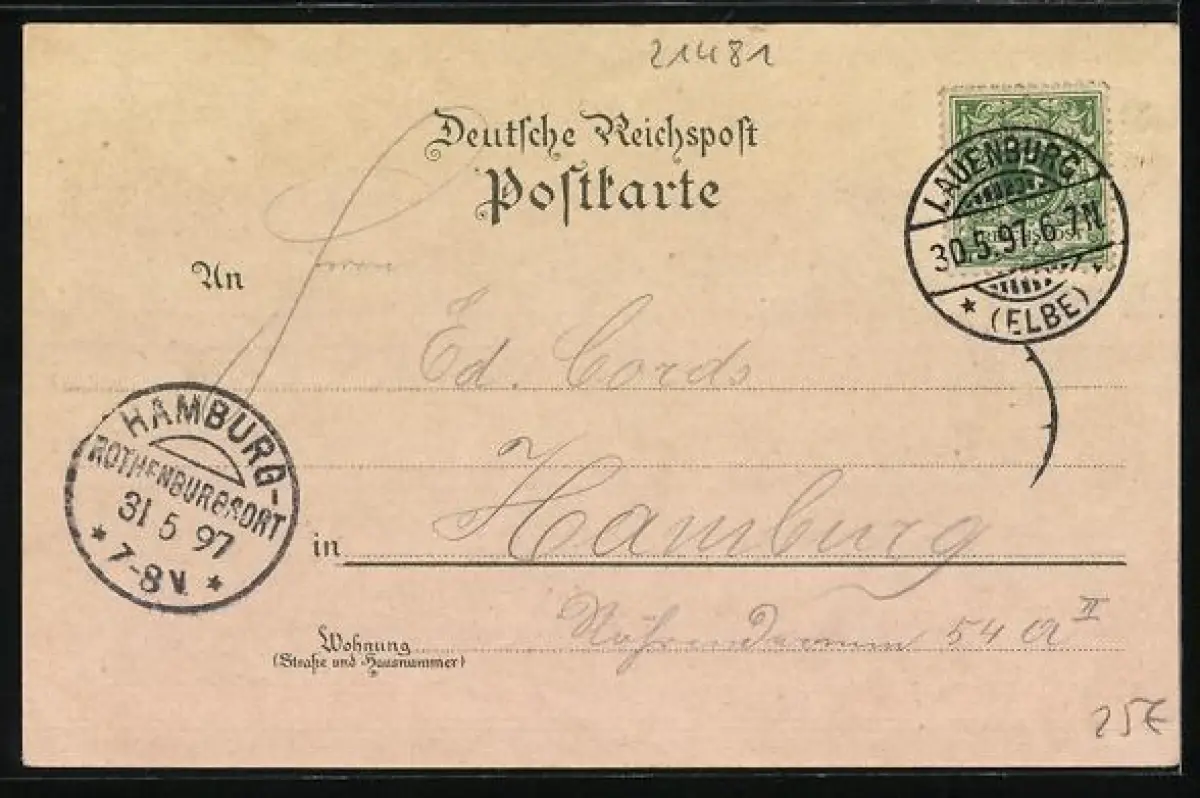 21481
Deutsche Reichspost
Postkarte
LAUENBURG
30.5.97.6-7N
* (ELBE)
An
Herrn
Ed. Cords
HAMBURG-
ROTHENBURGSORT
31 5 97
* 7-8 V. *
in Hamburg
Wohnung
(Straße und Hausnummer)
54 a II
25€